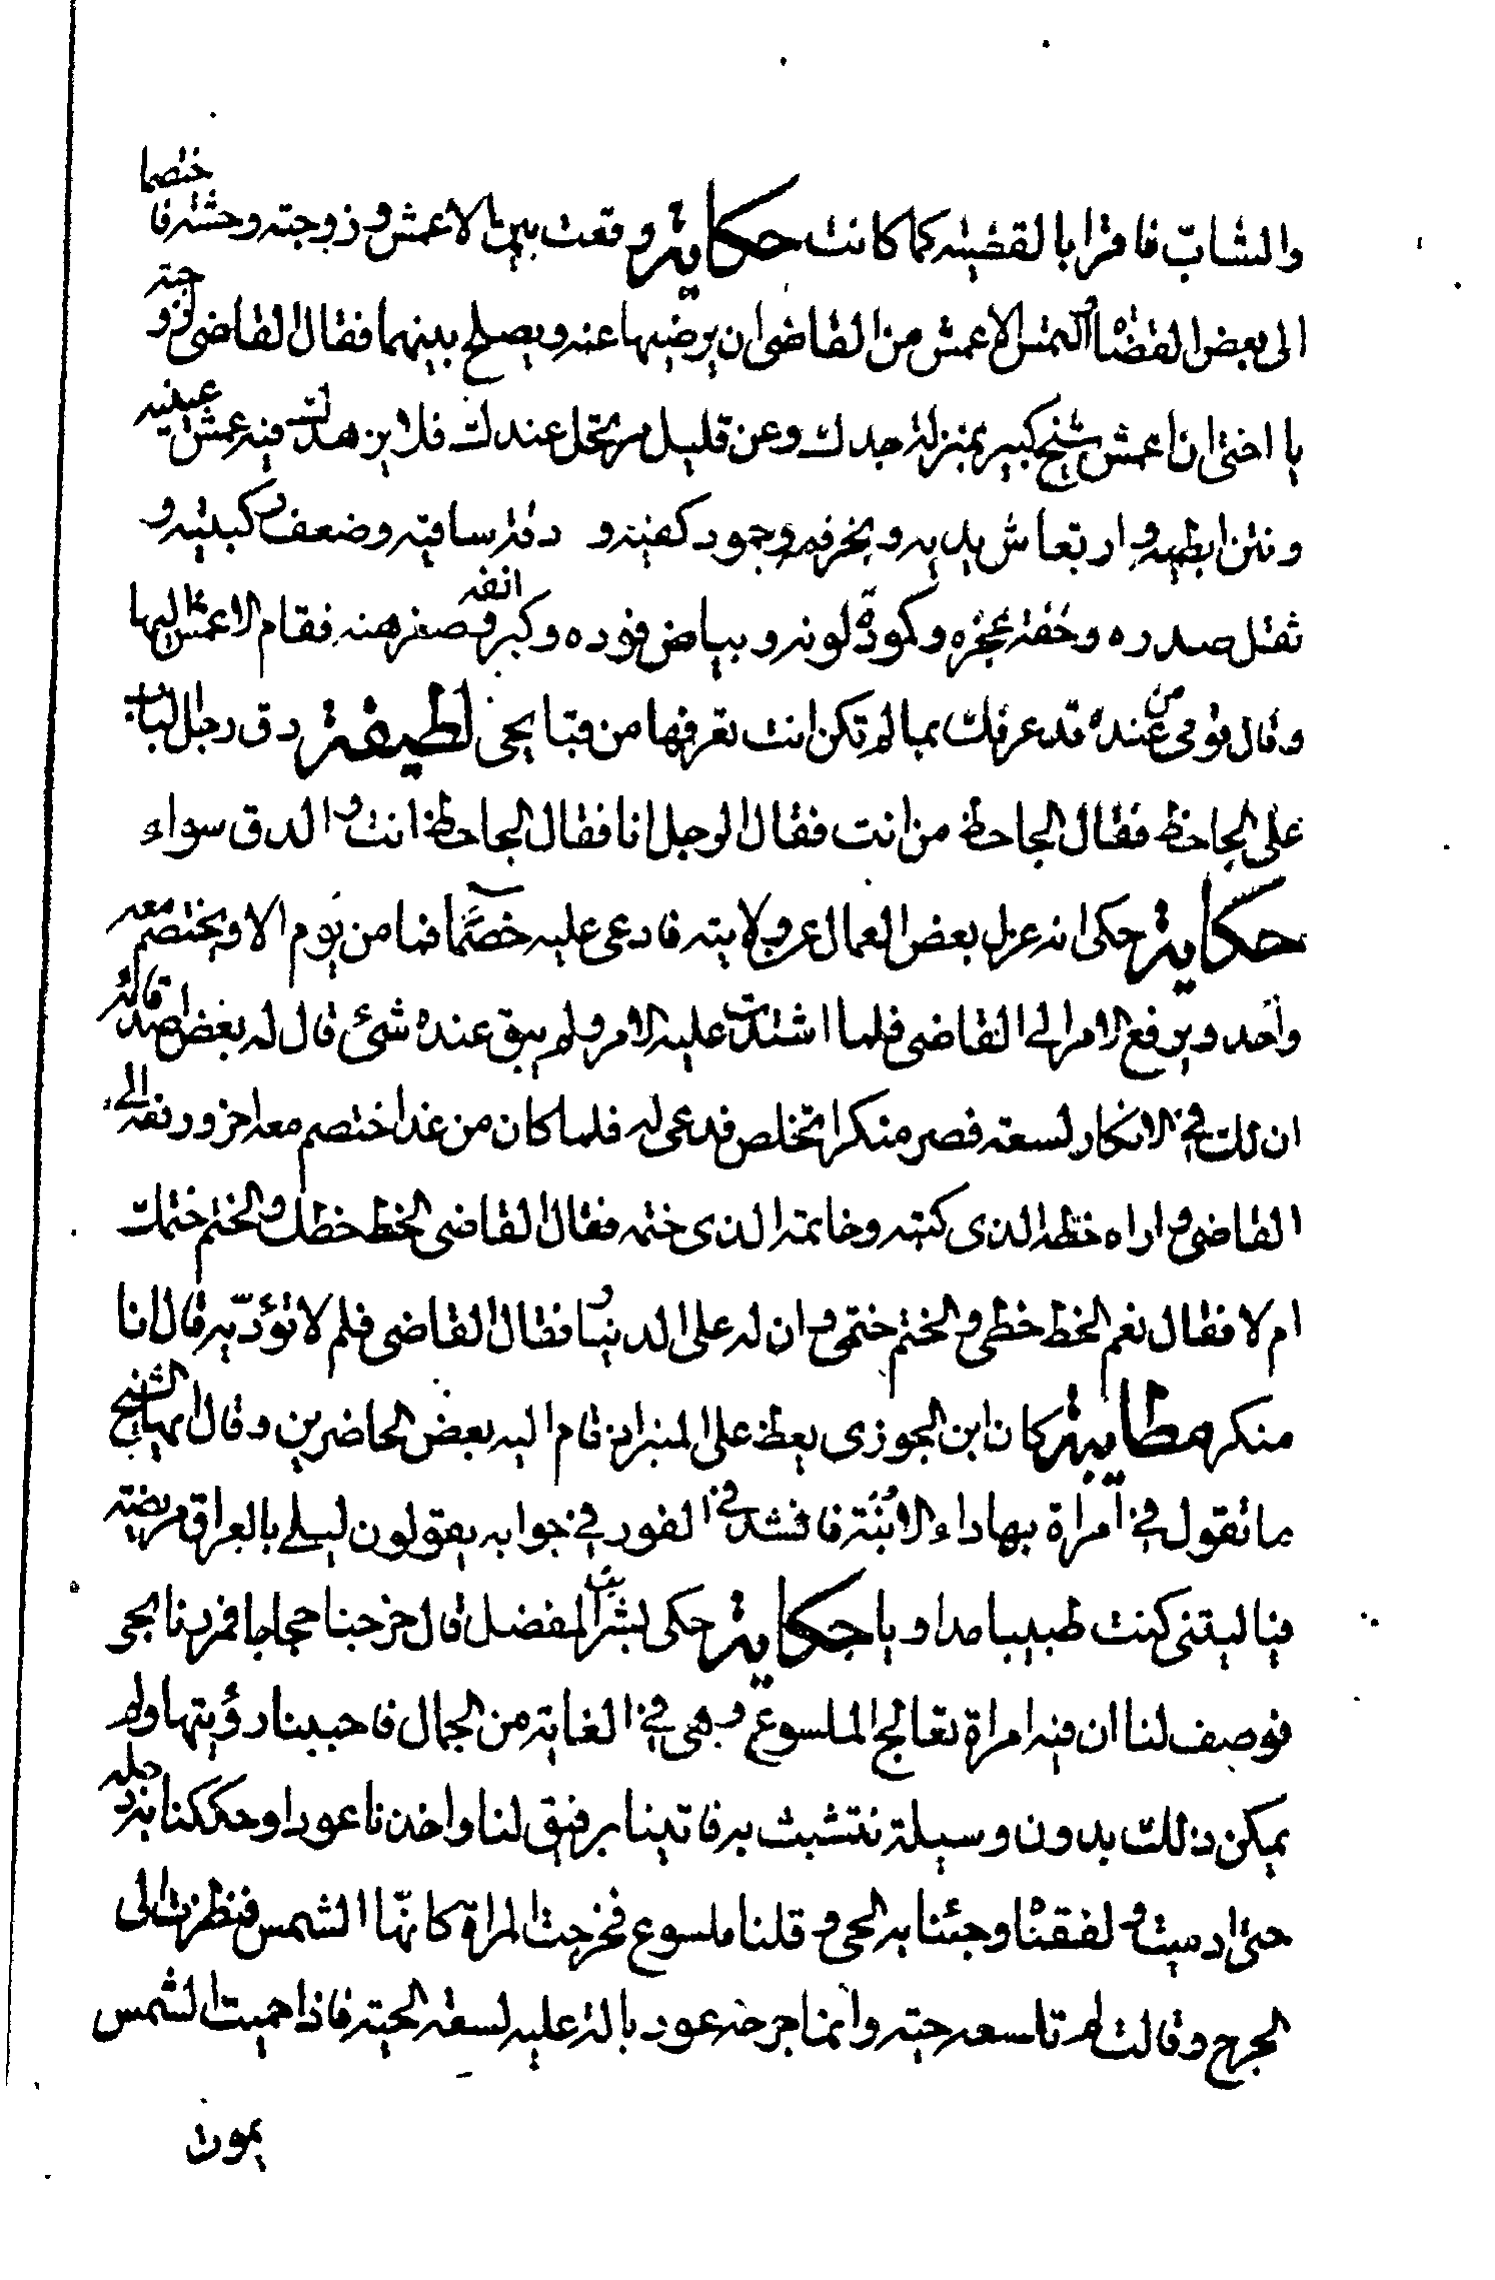 والشابّ فاقرا بالقضيته كما كانت حكاية وقعت بين الاعمش و زوجته وحشة فاختصما
الى بعض القضاة التمس الاعمش من القاضى ان يرضيها عنه ويصلح بينهما فقال القاضى لزوجته
يا اختى ان اعمش شيخ كبير بمنزلة جدك وعن قليل مرتحل عندك فلا يزهدك فيه عمش عينيه
ونتن ابطيه و ارتعاش يديه و بخر فيه وجمود كفيه و دقة ساقيه وضعف ركبتيه و
ثقل صدره وخفة عجزه وكمودة لونه و بياض فوده وكبر انفه وصغر هنه فقام الاعمش اليها
وقال قومى من عنده قد عرفك بما لم تكن انت تعرفها من قبايحى لطيفة دق رجل الباب
على الجاحظ فقال الجاحظ من انت فقال الرجل انا فقال الجاحظ انت و الدق سواء
حكاية حكى انه عزل بعض العمال عن ولايته فادعى عليه خصما فما من يوم الا ويختصم معه
واحد ويرفع الامر الى القاضى فلما اشتدت عليه الامر ولم يبق عنده شئ قال له بعض اصدقائه
ان لك فى الانكار لسعة فصر منكرا تخلص فدعى له فلما كان من غد اختصم معه اخر ورفعه الى
القاضى و اراه خطه الذى كتبه وخاتمه الذى ختمه فقال القاضى الخط خطك والختم ختمك
ام لا فقال نعم الخط خطى و الختم ختمى و ان له على الدنيا فقال القاضى فلم لا تؤدّيه قال انا
منكر مطايبة كان ابن الجوزى يعظ على المنبر اذ قام اليه بعض الحاضرين وقال ايها الشيخ
ما تقول فى امراة بها داء الابنة فانشد فى الفور فى جوابه يقولون ليلى بالعراق مريضة
فيا ليتنى كنت طبيبا مداويا حكاية حكى بشر بن المفضل قال خرجنا حجاجا فمررنا بحى
فوصف لنا ان فيه امراة تعالج الملسوع وهى فى الغاية من الجمال فاحببنا رؤيتها ولم
يمكن ذلك بدون وسيلة نتشبث به فاتينا برفيق لنا واخذنا عودا وحككنا به رجله
حتى ادميت و لفقنا وجئنا به الحى و قلنا ملسوع فخرجت المراة كانّها الشمس فنظرت الى
الجرح وقالت لم تلسعه حية وانما جرحه عود بالت عليه لسعة الحية فاذا حميت الشمس
يموت